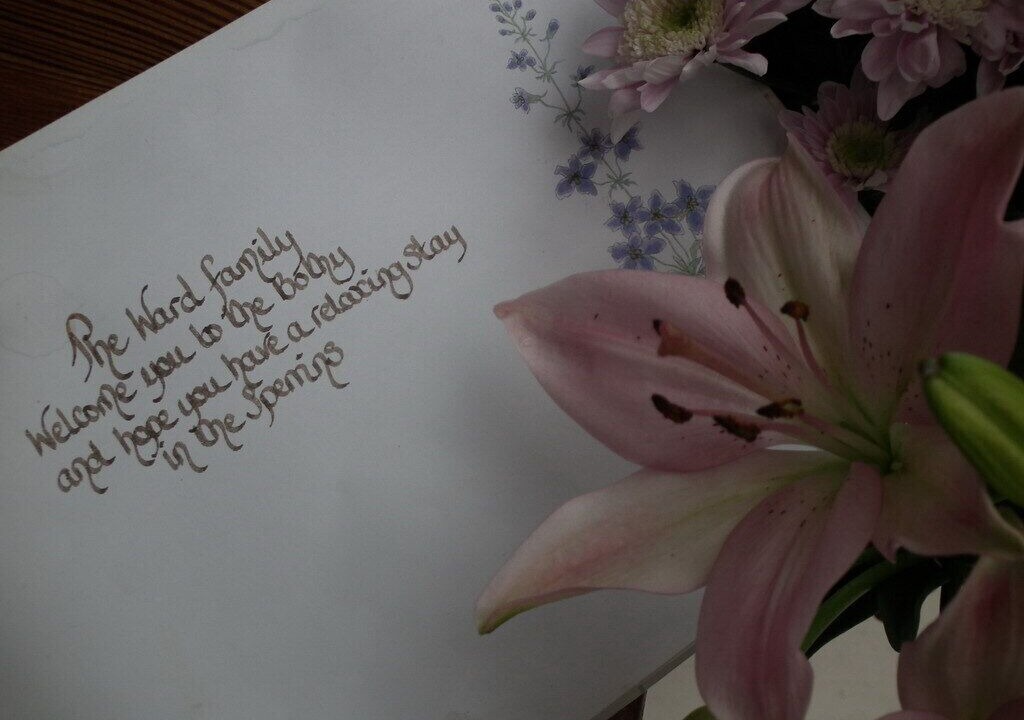 The Ward family
Welcome you to the Bothy
and hope you have a relaxing stay
in the Sperrins